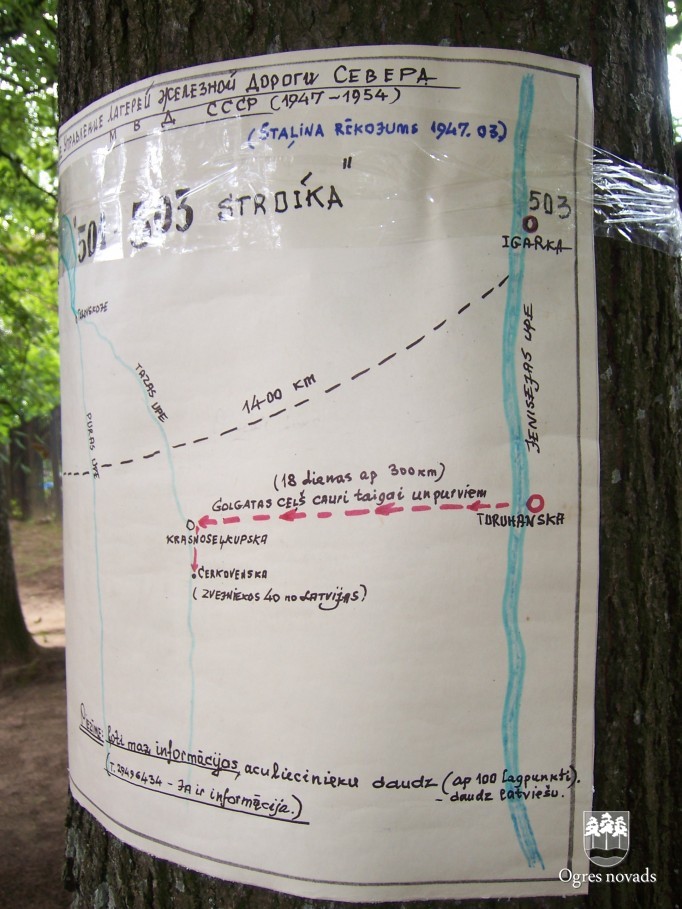 УПРАВЛЕНИЕ ЛАГЕРЕЙ ЖЕЛЕЗНОЙ ДОРОГИ СЕВЕРА
МВД СССР (1947-1954)
(STAĻINA RĒĶOJUMS 1947.03)
"501 503 STROIKA"
503
IGARKA
TAZAS UPE
PURAS UPE
1400 KM
JENISEJAS UPE
(18 dienas ap 300km)
GOLGATAS CEĻŠ CAURI taigai un purviem
TURUHANSKA
KRASNOSEĻKUPSKA
ČERKOVENSKA
(ZVEJNIEKOS 40 no LATVIJAS)
Piezīme: Ļoti maz informācijas, aculiecinieku daudz (ap 100 lagpunkti).
(T. 29496434 - JA ir informācija.) - daudz latviešu.
Ogres novads